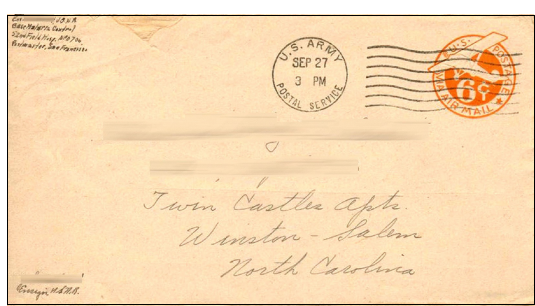 Base Malaria Control
Field Hosp. APO 706
Postmaster, San Francisco
U.S. ARMY
SEP 27
3 PM
POSTAL SERVICE
U.S. POSTAGE
6¢
VIA AIR MAIL
Twin Castles Apts.
Winston-Salem
North Carolina
Ensign